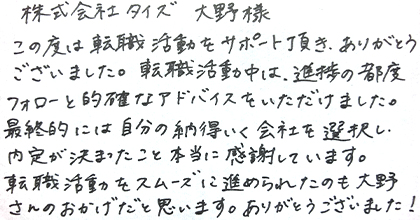 株式会社タイズ 大野様
この度は転職活動をサポート頂き、ありがとう
ございました。転職活動中は、進捗の都度
フォローと的確なアドバイスをいただけました。
最終的には自分の納得いく会社を選択し
内定が決まったこと本当に感謝しています。
転職活動をスムーズに進められたのも大野
さんのおかげだと思います。ありがとうございました!